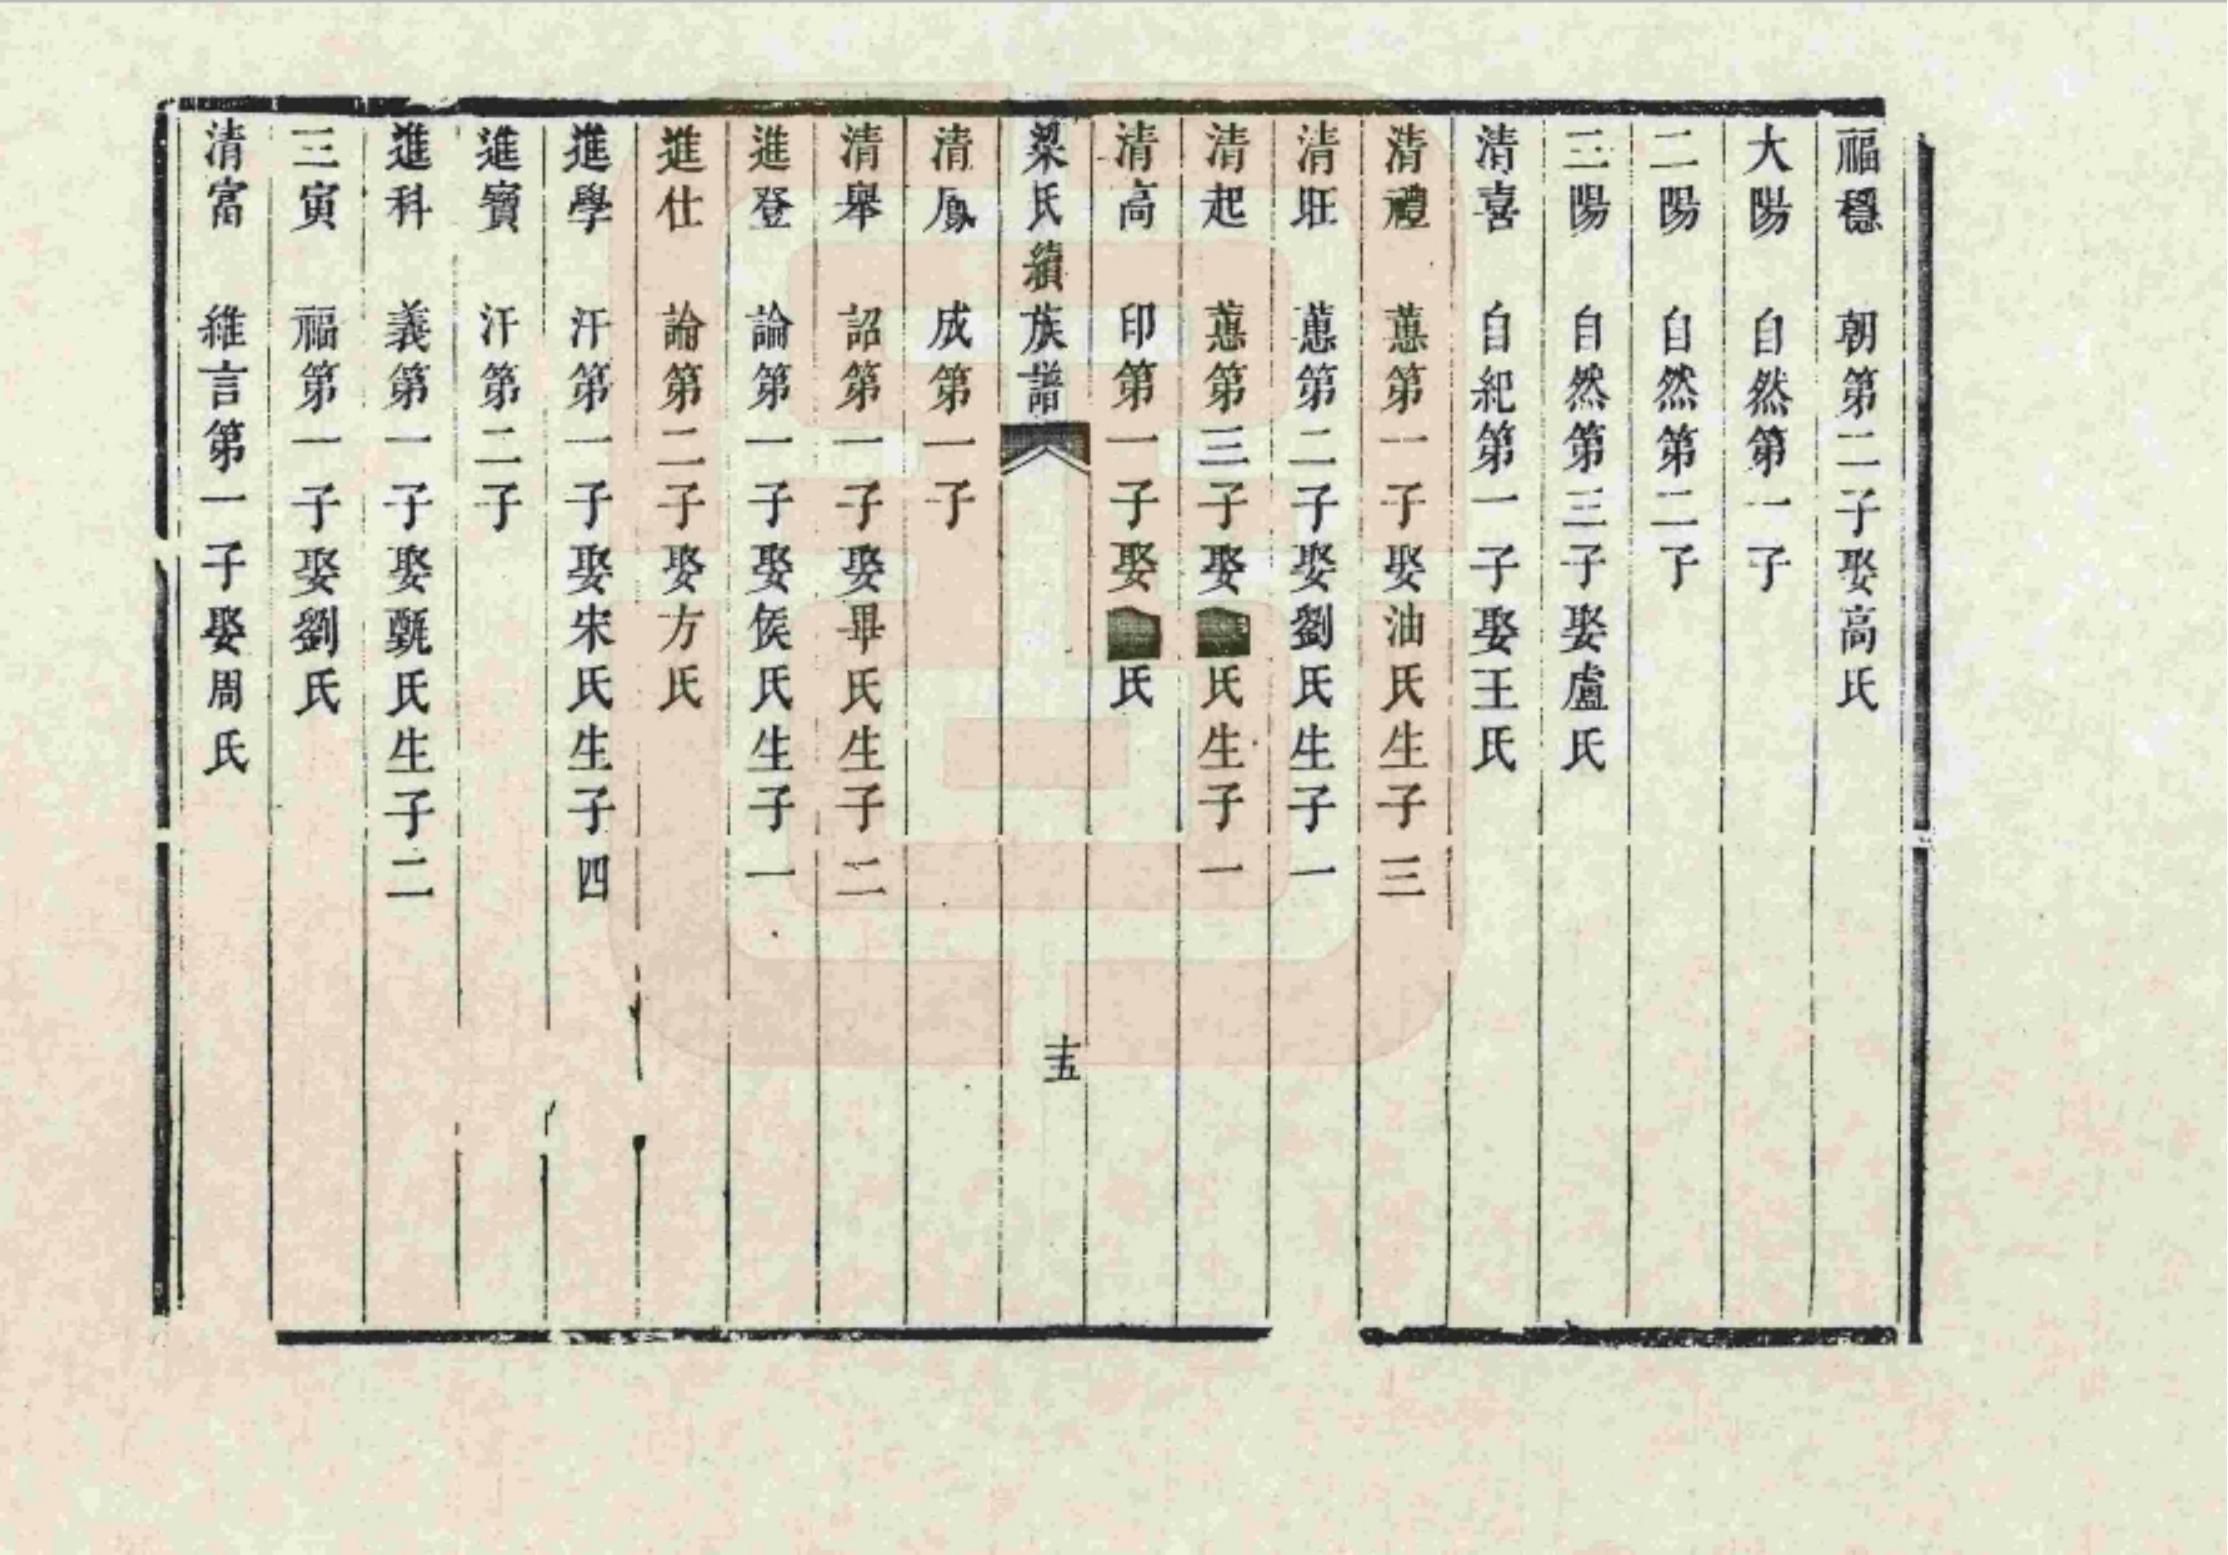 福穩 朝第二子娶高氏
大陽 自然第一子
二陽 自然第二子
三陽 自然第三子娶盧氏
清喜 自紀第一子娶王氏
清禮 蕙第一子娶油氏生子三
清旺 蕙第二子娶劉氏生子一
清起 蕙第三子娶 氏生子一
清高 印第一子娶 氏
梁氏續族譜 十五
清鳳 成第一子
清舉 詔第一子娶畢氏生子二
進登 論第一子娶侯氏生子一
進仕 論第二子娶方氏
進學 汗第一子娶宋氏生子四
進寶 汗第二子
進科 義第一子娶甄氏生子二
三寅 福第一子娶劉氏
清富 維言第一子娶周氏